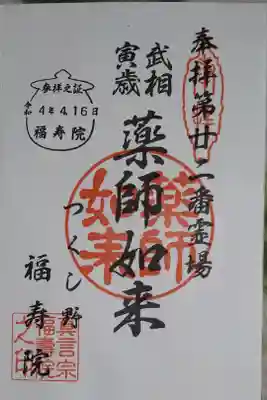 奉拝第廿二番霊場
武相
寅歳
薬師如来
つくし野
福寿院
参拝之証
令和
4年4.16日
福寿院
薬師
如来
真言宗
福寿院